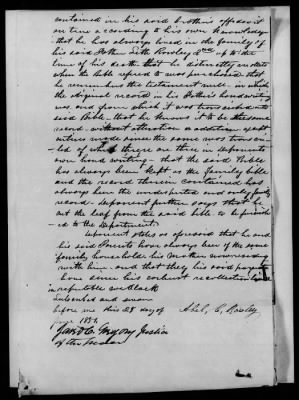 contained in his said brothers affidavit
are true according to his own knowledge
that he has always lived in the family of
his said Father Seth Rowley 2nd up to the
time of his death that he distinctly recollects
when the Bible refered to was purchased that
he remembers the testament well in which
the original record in his Father's handwriting
was and from which it was transcribed into
said Bible that he knows it to be the same
record without alteration or addition except
entries made since the same was transcri
-bed of which there are three in deponents
own hand writing - that the said Bible
has always been kept as the family bible
and the record therein contained has
always been the undisputed and only family
record. Deponent further says that he
cut the leaf from the said bible to be furnish
-ed to the Department.
Deponent states as aforesaid that he and
his said Parents have always been of the same
family household his Mother now residing
with him and that they his said parents
have since his earliest recollection lived
in reputable wedlock
Subscribed and sworn
before me this 28 day of Abel, C, Rowley
June 1851
Gregory Justice
of the Peace